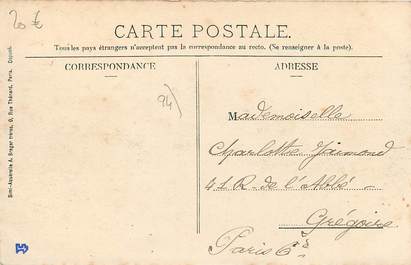 20 €
CARTE POSTALE.
Tous les pays étrangers n'acceptent pas la correspondance au recto. (Se renseigner à la poste).
CORRESPONDANCE
ADRESSE
94)
Mademoiselle
Charlotte
41 R. de l'Abbé
Grégoire
Paris 6e
Semi-Aquarelle A. Breger frères, 9, Rue Thénard, Paris. Déposé.